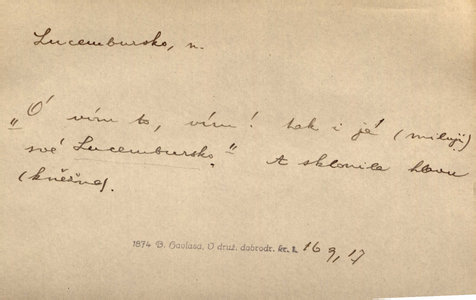 Lucembursko, n.
„Ó vím to, vím! tak i já (miluji)
své Lucembursko." A sklonila hlavu
(kněžna).
1874 B. Havlasa, V druž. dobrodr. kr. I. 169, 17